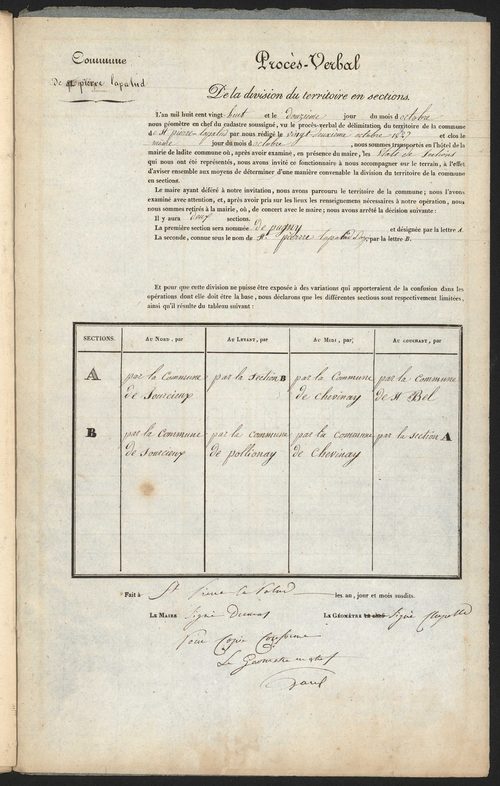 Commune
de St pierre lapalud
Procès-Verbal
De la division du territoire en sections.
L'an mil huit cent vingt-huit et le douzieme jour du mois d'octobre
nous géomètre en chef du cadastre soussigné, vu le procès-verbal de délimitation du territoire de la commune
de St pierre lapalud par nous rédigé le vingt deuxième octobre et clos le
jour du mois d'octobre, nous sommes transportés en l'hôtel de la
mairie de ladite commune où, après avoir examiné, en présence du maire, les États de Sections
qui nous ont été représentés, nous avons invité ce fonctionnaire à nous accompagner sur le terrain, à l'effet
d'aviser ensemble aux moyens de déterminer d'une manière convenable la division du territoire de la commune
en sections.
Le maire ayant déféré à notre invitation, nous avons parcouru le territoire de la commune; nous l'avons
examiné avec attention, et, après avoir pris sur les lieux les renseignemens nécessaires à notre opération, nous
nous sommes retirés à la mairie où, de concert avec le maire; nous avons arrêté la décision suivante:
Il y aura deux sections.
La première section sera nommée de pugny et désignée par la lettre A.
La seconde, connue sous le nom de St pierre lapalud par la lettre B.
Et pour que cette division ne puisse être exposée à des variations qui apporteraient de la confusion dans les
opérations dont elle doit être la base, nous déclarons que les différentes sections sont respectivement limitées,
ainsi qu'il résulte du tableau suivant:
SECTIONS. Au Nord, par Au Levant, par Au Midi, par Au couchant, par
A par la Commune par la section B par la Commune par la Commune
de Sourcieux de Chevinay de St Bel
B par la Commune par la commune par la Commune par la section A
de Sourcieux de pollionay de Chevinay
Fait à St Pierre la Palud les an, jour et mois susdits.
Le Maire Signé Dumas Le Géomètre en chef Signé
Pour Copie Conforme
Le Géomètre en chef